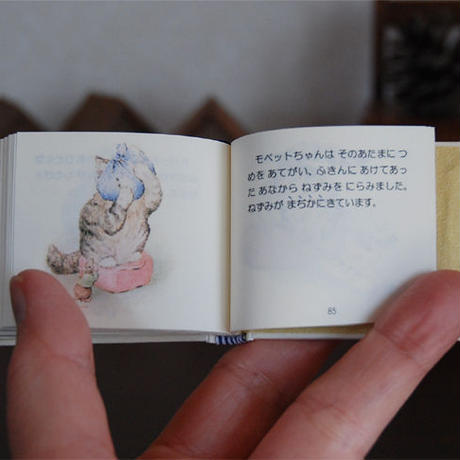 モペットちゃんは そのあたまに つ
めを あてがい、ふきんに あけてあっ
た あなから ねずみを にらみました。
ねずみが まぢかにきています。
85